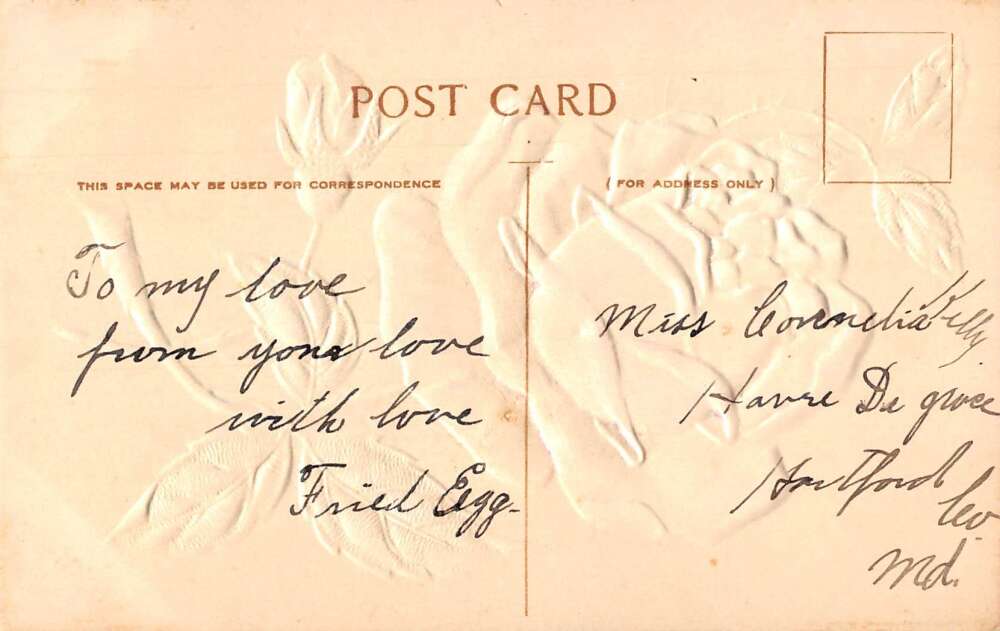 POST CARD
THIS SPACE MAY BE USED FOR CORRESPONDENCE
(FOR ADDRESS ONLY)
To my love
from your love
with love
Fried Egg-
Miss Cornelia Kelly
Havre De grace
Hartford
Co
Md.